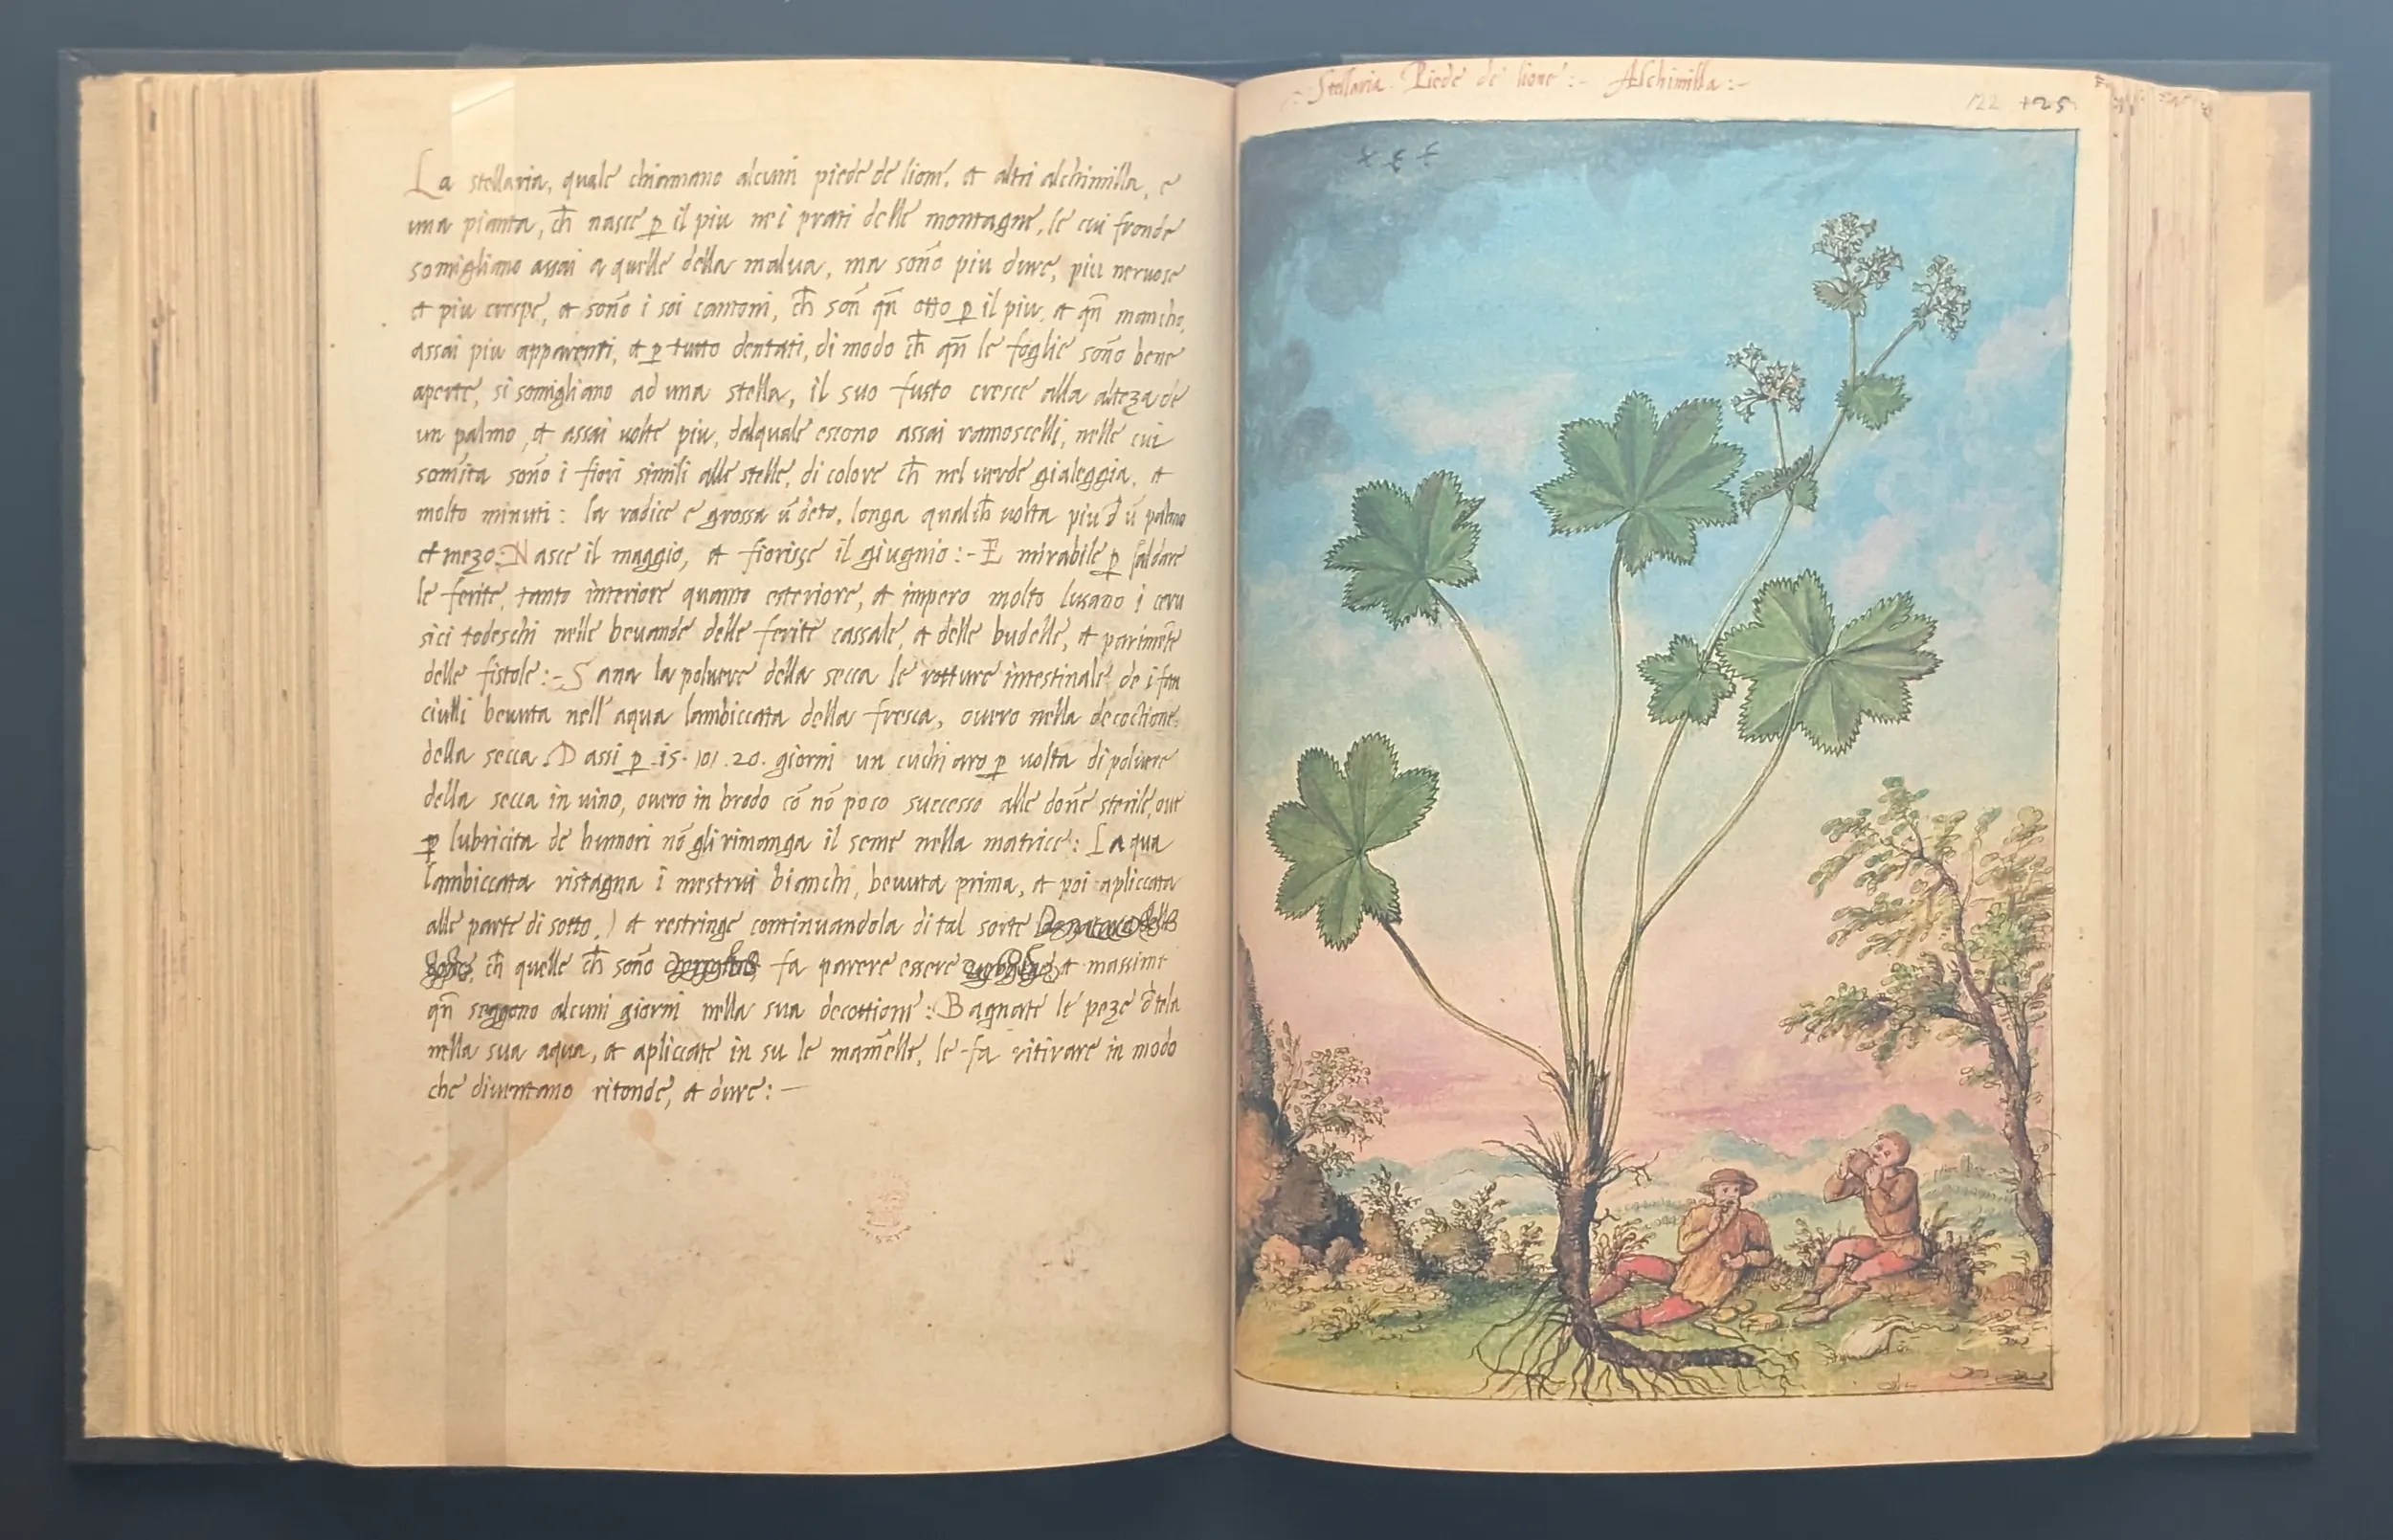 La stellaria, quale chiamano alcuni piede de lione, et altri alchimilla, e
una pianta, ch̄ nasce p̱ il piu ne i prati delle montagne, le cui fronde
somigliano assai a quelle della malua, ma sono piu dure, piu neruose
et piu crespe, et sono i soi cantoni, ch̄ son qn̄ otto p̱ il piu, et qn̄ mancho,
assai piu apparenti, et p̱ tutto dentati, di modo ch̄ qn̄ le foglie sono bene
aperte, si somigliano ad una stella, il suo fusto cresce alla alteza de
un palmo, et assai uolte piu, dalquale escono assai ramoscelli, nelle cui
somita sono i fiori simili alle stelle, di colore ch̄ nel uerde gialeggia, et
molto minuti: la radice e grossa ū deto, longa qualch̄ uolta piu d ū palmo
et mezo: Nasce il maggio, et fiorisce il giugnio:- E mirabile p̱ saldare
le ferite, tanto interiore quanto esteriore, et impero molto lusano i ceru
sici todeschi nelle beuande delle ferite cassale, et delle budelle, et parimēte
delle fistole:- Sana la poluere della secca le rotture intestinale de i fan
ciulli beuuta nell'aqua lambiccata della fresca, ouero nella decoctione
della secca. Dassi p̱ .15. 20. giorni un cuchiaro p̱ uolta di poluere
della secca in uino, ouero in brodo cō nō poco successo alle done sterile, oue
p̱ lubricita de humori nō gli rimanga il seme nella matrice: Laqua
lambiccata ristagna i mestrui bianchi, beuuta prima, et poi apliccata
alle parte di sotto.) et restringe continuandola di tal sorte
ch̄ quelle ch̄ sono fa parere essere et massime
qn̄ seggono alcuni giorni nella sua decottione: Bagnate le peze d tela
nella sua aqua, et apliccate in su le mamelle, le fa ritirare in modo
che diuentano ritonde, et dure:—
Stellaria. Piede de lione:- Alchimilla:-
122 125